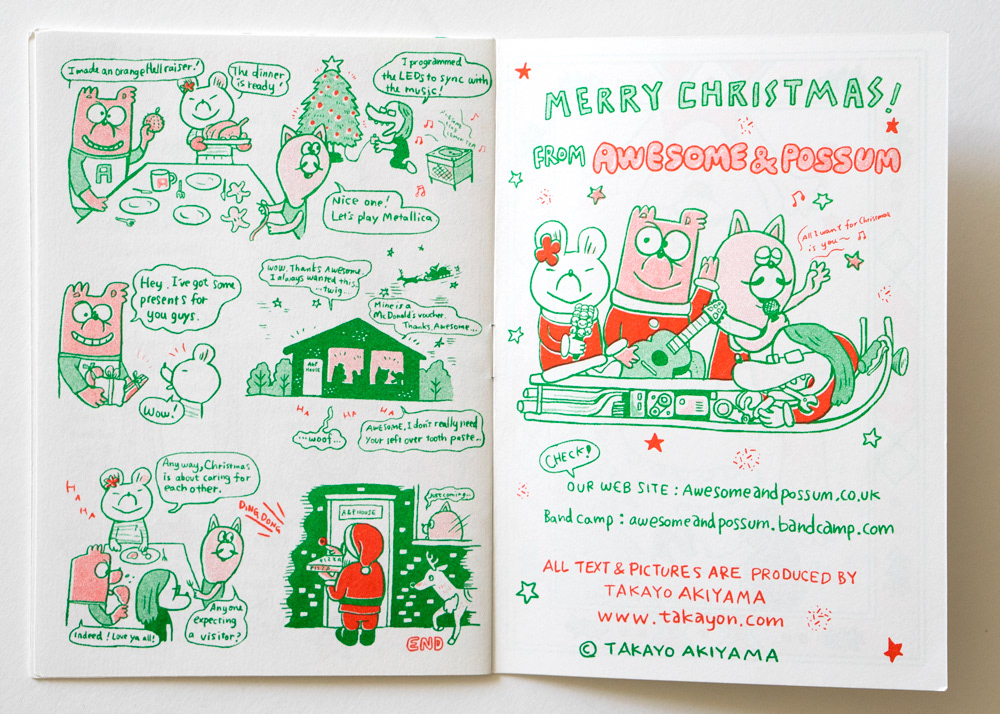 I made an orange Hellraiser!
The dinner
is ready!
I programmed
the LEDs to sync with
the music!
Nice one!
Let's play Metallica
A
Hey. I've got some
presents for
you guys.
Wow!
wow. Thanks Awesome.
I always wanted this.
...twig...
Mine is a
McDonald's voucher.
Thanks Awesome...
A&P
HOUSE
HA HA HA
...woof...
AWESOME, I don't really need
your left over tooth paste...
Anyway, Christmas
is about caring for
each other.
HA
HA
DING DONG
Indeed! Love ya all!
Anyone
expecting
a visitor?
A&P HOUSE
Just coming...
PIZZA
PIZZA
END
MERRY CHRISTMAS!
FROM AWESOME & POSSUM
All I want for Christmas
is you~
CHECK!
OUR WEB SITE : Awesomeandpossum.co.uk
Band camp : awesomeandpossum.bandcamp.com
ALL TEXT & PICTURES ARE PRODUCED BY
TAKAYO AKIYAMA
www.takayon.com
© TAKAYO AKIYAMA